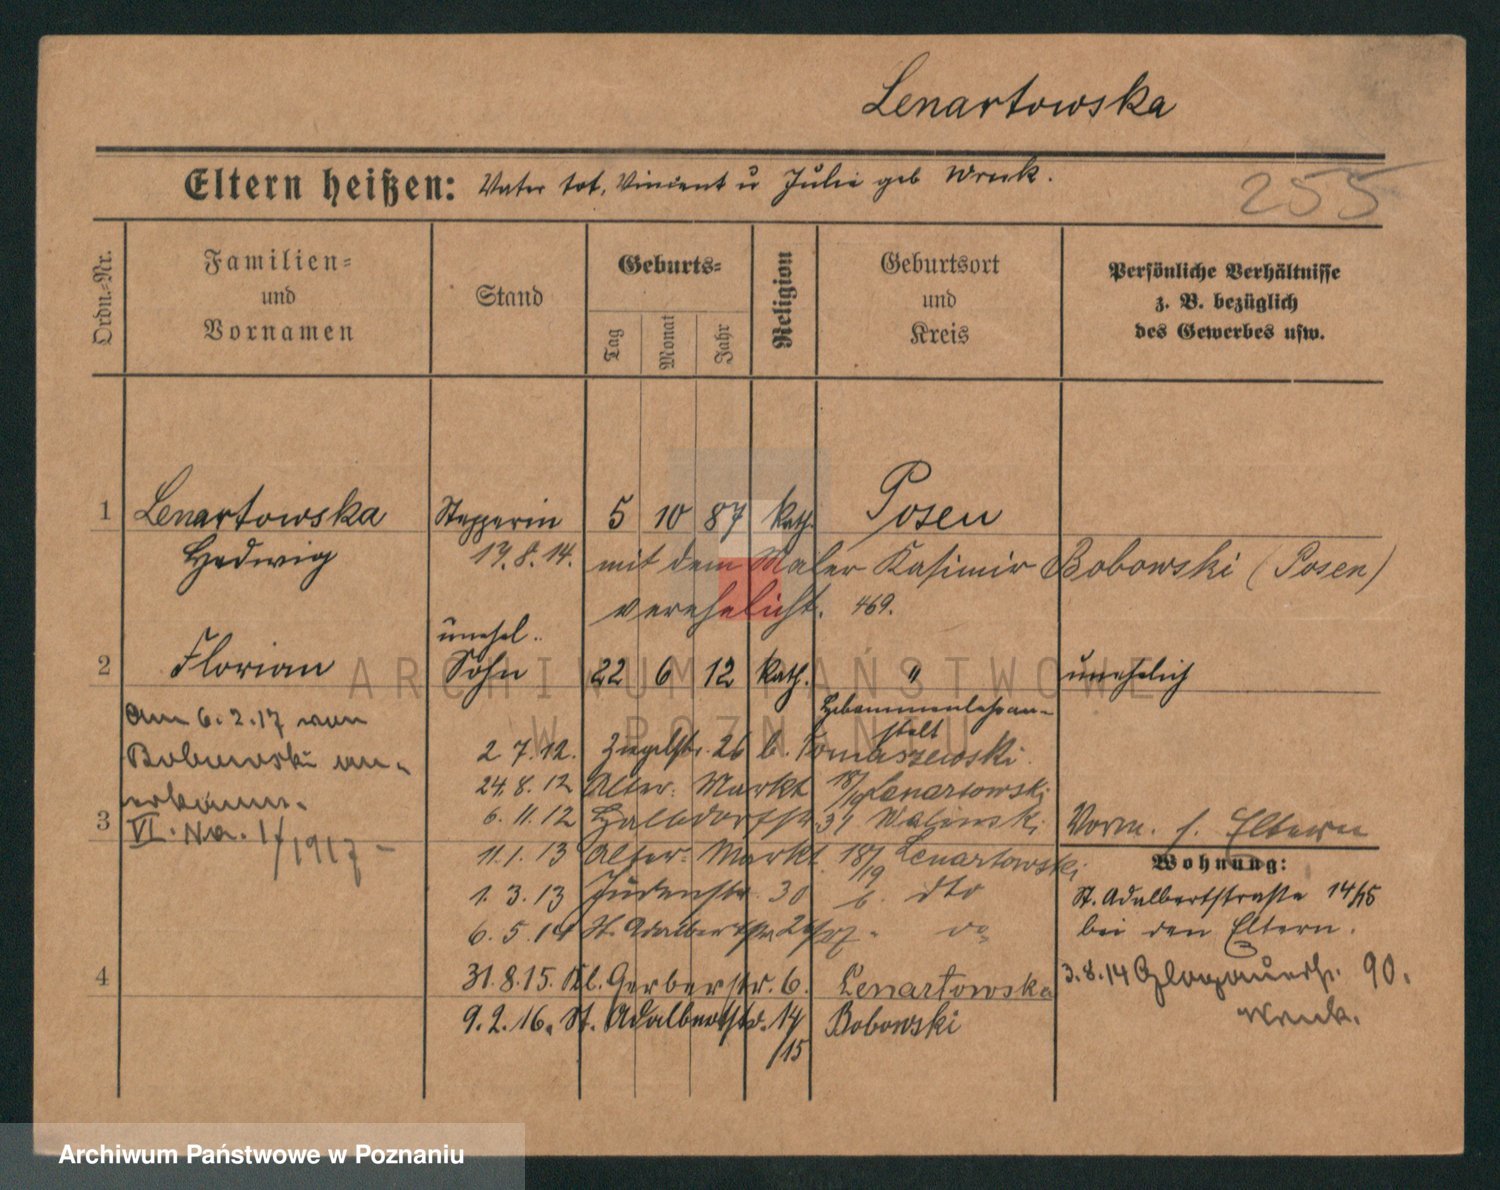 Lenartowska
Eltern heißen: Vater tot, Vincent u Julie geb Wruk.
255
Ordn.-Nr.
Familien-
und
Vornamen
Stand
Geburts-
Tag
Monat
Jahr
Religion
Geburtsort
und
Kreis
Persönliche Verhältnisse
z. B. bezüglich
des Gewerbes usw.
1 Lenartowska Stepperin 5 10 87 kath. Posen
Hedwig 17.8.14. mit dem Maler Kasimir Bobowski (Posen)
verehelicht. 469.
unehel.
2 Florian Sohn 22 6 12 kath. " unehelich
Hebammenlehran-
stalt
Am 6.2.17 von
Bobowski an-
erkannt.
VI. Na. 1/1917 -
3
2.7.12. Ziegelstr. 26 b. Tomaszewski.
24.8.12 Alter Markt 18/19 Lenartowski
6.11.12 Halbdorfstr 31 Walinski
11.1.13 Alter Markt 18/19 Lenartowski
1.3.13 Judenstr. 30 b. dto
6.5.14 St. Adalbertstr.
4
31.8.15. Kl. Gerberstr. 6. Lenartowska
9.2.16. St. Adalbertstr. 14/15 Bobowski
Vorm. s. Eltern
Wohnung:
St. Adalbertstrasse 14/15
bei den Eltern.
3.8.14 Glogauerstr. 90.
Wruk.
ARCHIWUM PAŃSTWOWE
W POZNANIU
Archiwum Państwowe w Poznaniu